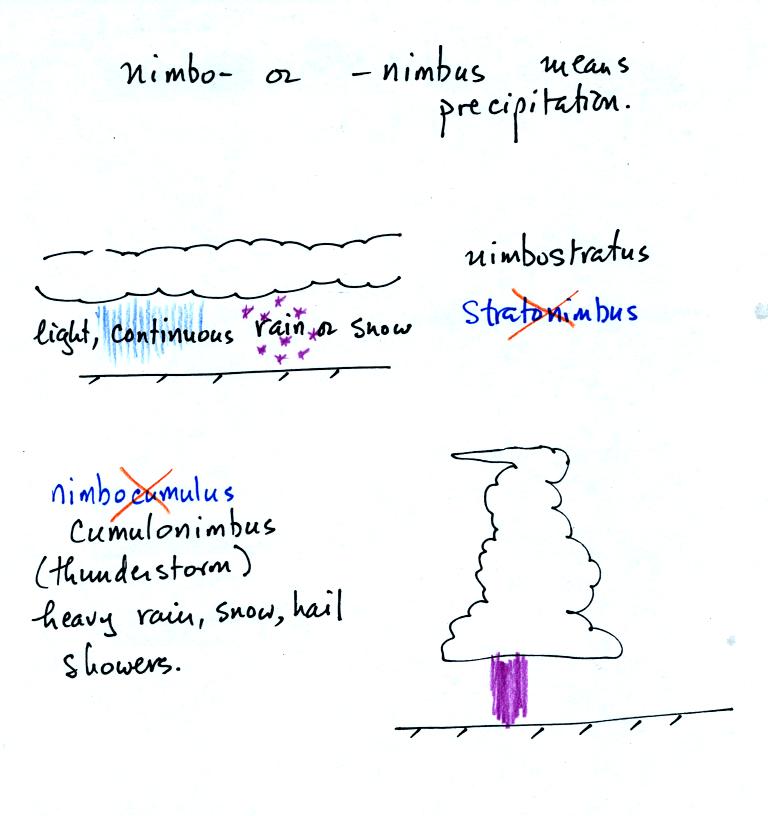 nimbo- or -nimbus means
precipitation.
nimbostratus
Stratonimbus
light, continuous rain or snow
nimbocumulus
Cumulonimbus
(thunderstorm)
heavy rain, snow, hail
showers.